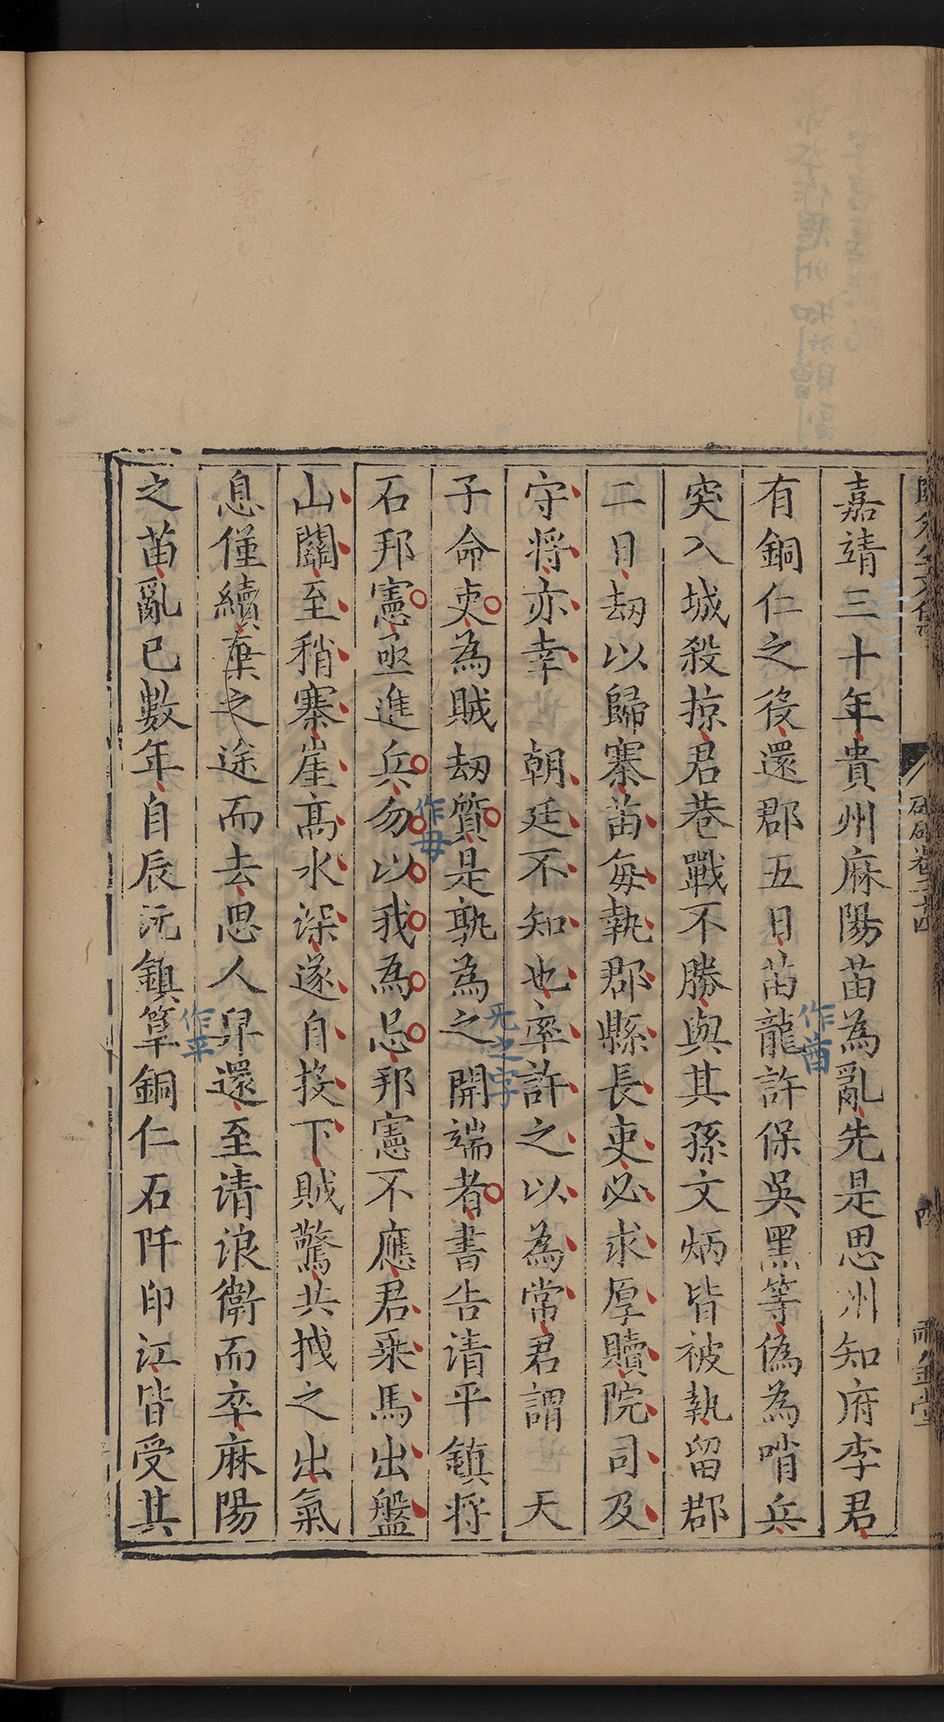 嘉靖三十年貴州麻陽苗為亂先是思州知府李君
有銅仁之役還郡五日苗龍許保吳黑等偽為哨兵
突入城殺掠君巷戰不勝與其孫文炳皆被執留郡
二日劫以歸寨苗每執郡縣長吏必求厚贖院司及
守將亦幸 朝廷不知也率許之以為常君謂 天
子命吏為賊劫質是孰為之開端者書告请平鎮將
石邦憲亟進兵勿以我為忌邦憲不應君乘馬出盤
山闗至稍寨崖髙水深遂自投下賊驚共拽之出氣
息僅續棄之途而去思人舁還至请浪衛而卒麻陽
之苗亂已數年自辰沅鎮筸銅仁石阡印江皆受其
作酋
无之字
作毋
作平